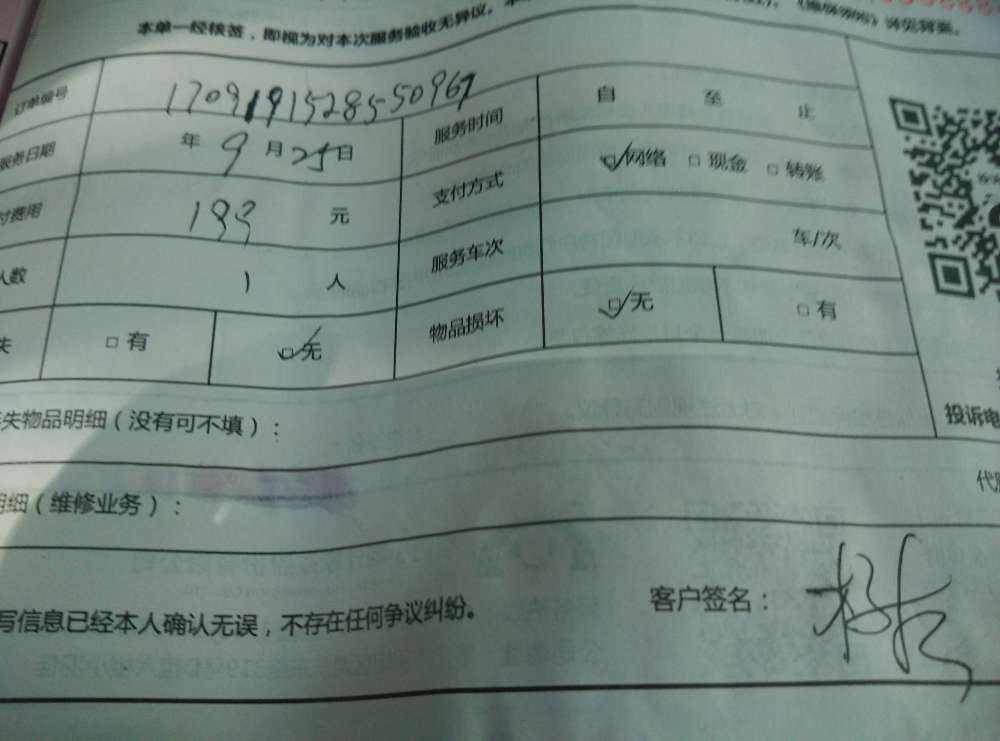 本单一经核签，即视为对本次服务验收无异议。
详见背面。
订单编号 170919152855096 服务时间 自 至 止
服务日期 年 9 月 25 日 支付方式 网络 □ 现金 □ 转账
付费用 199 元 服务车次 车/次
人数 1 人 物品损坏 无 □ 有
失 □ 有 无
失物品明细（没有可不填）： 投诉电
明细（维修业务）： 代
写信息已经本人确认无误，不存在任何争议纠纷。 客户签名：